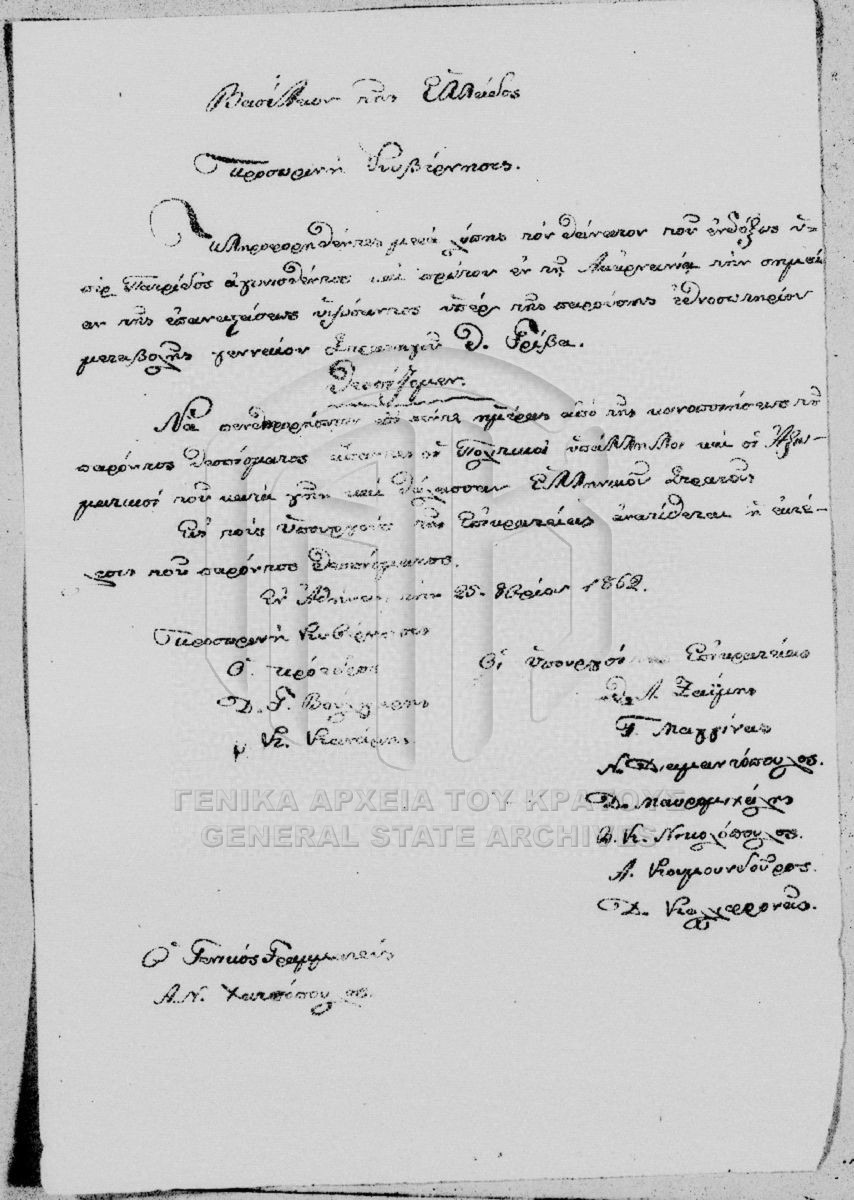 Βασίλειον τῆς Ἑλλάδος
Προσωρινή Κυβέρνησις.
Πληροφορηθέντες μετά λύπης τόν θάνατον τοῦ ἐνδόξως ὑ-
πέρ Πατρίδος ἀγωνισθέντος καί πρώτου ἐν τῇ Ἀκαρνανίᾳ τήν σημαί
αν τῆς ἐπαναστάσεως ὑψώσαντος ὑπέρ τῆς παρούσης ἐθνοσωτηρίου
μεταβολῆς γενναίου Στρατηγοῦ Θ. Γρίβα.
Θεσπίζομεν.
Νά πενθηφορήσωσιν ἐπί πέντε ἡμέρας ἀπό τῆς κοινοποιήσεως τοῦ
παρόντος θεσπίσματος ἅπαντες οἱ Πολιτικοί ὑπάλληλοι καί οἱ Ἀξιω-
ματικοί τοῦ κατά γῆν καί θάλασσαν Ἑλληνικοῦ Στρατοῦ.
Εἰς τούς Ὑπουργούς τῆς Ἐπικρατείας ἀνατίθεται ἡ ἐκτέ-
λεσις τοῦ παρόντος θεσπίσματος.
Ἐν Ἀθήναις τήν 25. 8βρίου 1862.
Προσωρινή Κυβέρνησις
Ὁ πρόεδρος
Δ. Γ. Βούλγαρης
Κ. Κανάρης
Οἱ Ὑπουργοί τῆς Ἐπικρατείας
Θ. Α. Ζαΐμης
Τ. Μαγγίνας
Ν. Διαμαντόπουλος.
Δ. Μαυρομιχάλης
Β. Κ. Νικολόπουλος.
Α. Κουμουνδοῦρος.
Δ. Καλλιφρονᾶς.
Ὁ Γενικός Γραμματεύς
Α. Ν.
ΓΕΝΙΚΑ ΑΡΧΕΙΑ ΤΟΥ ΚΡΑΤΟΥΣ
GENERAL STATE ARCHIVES